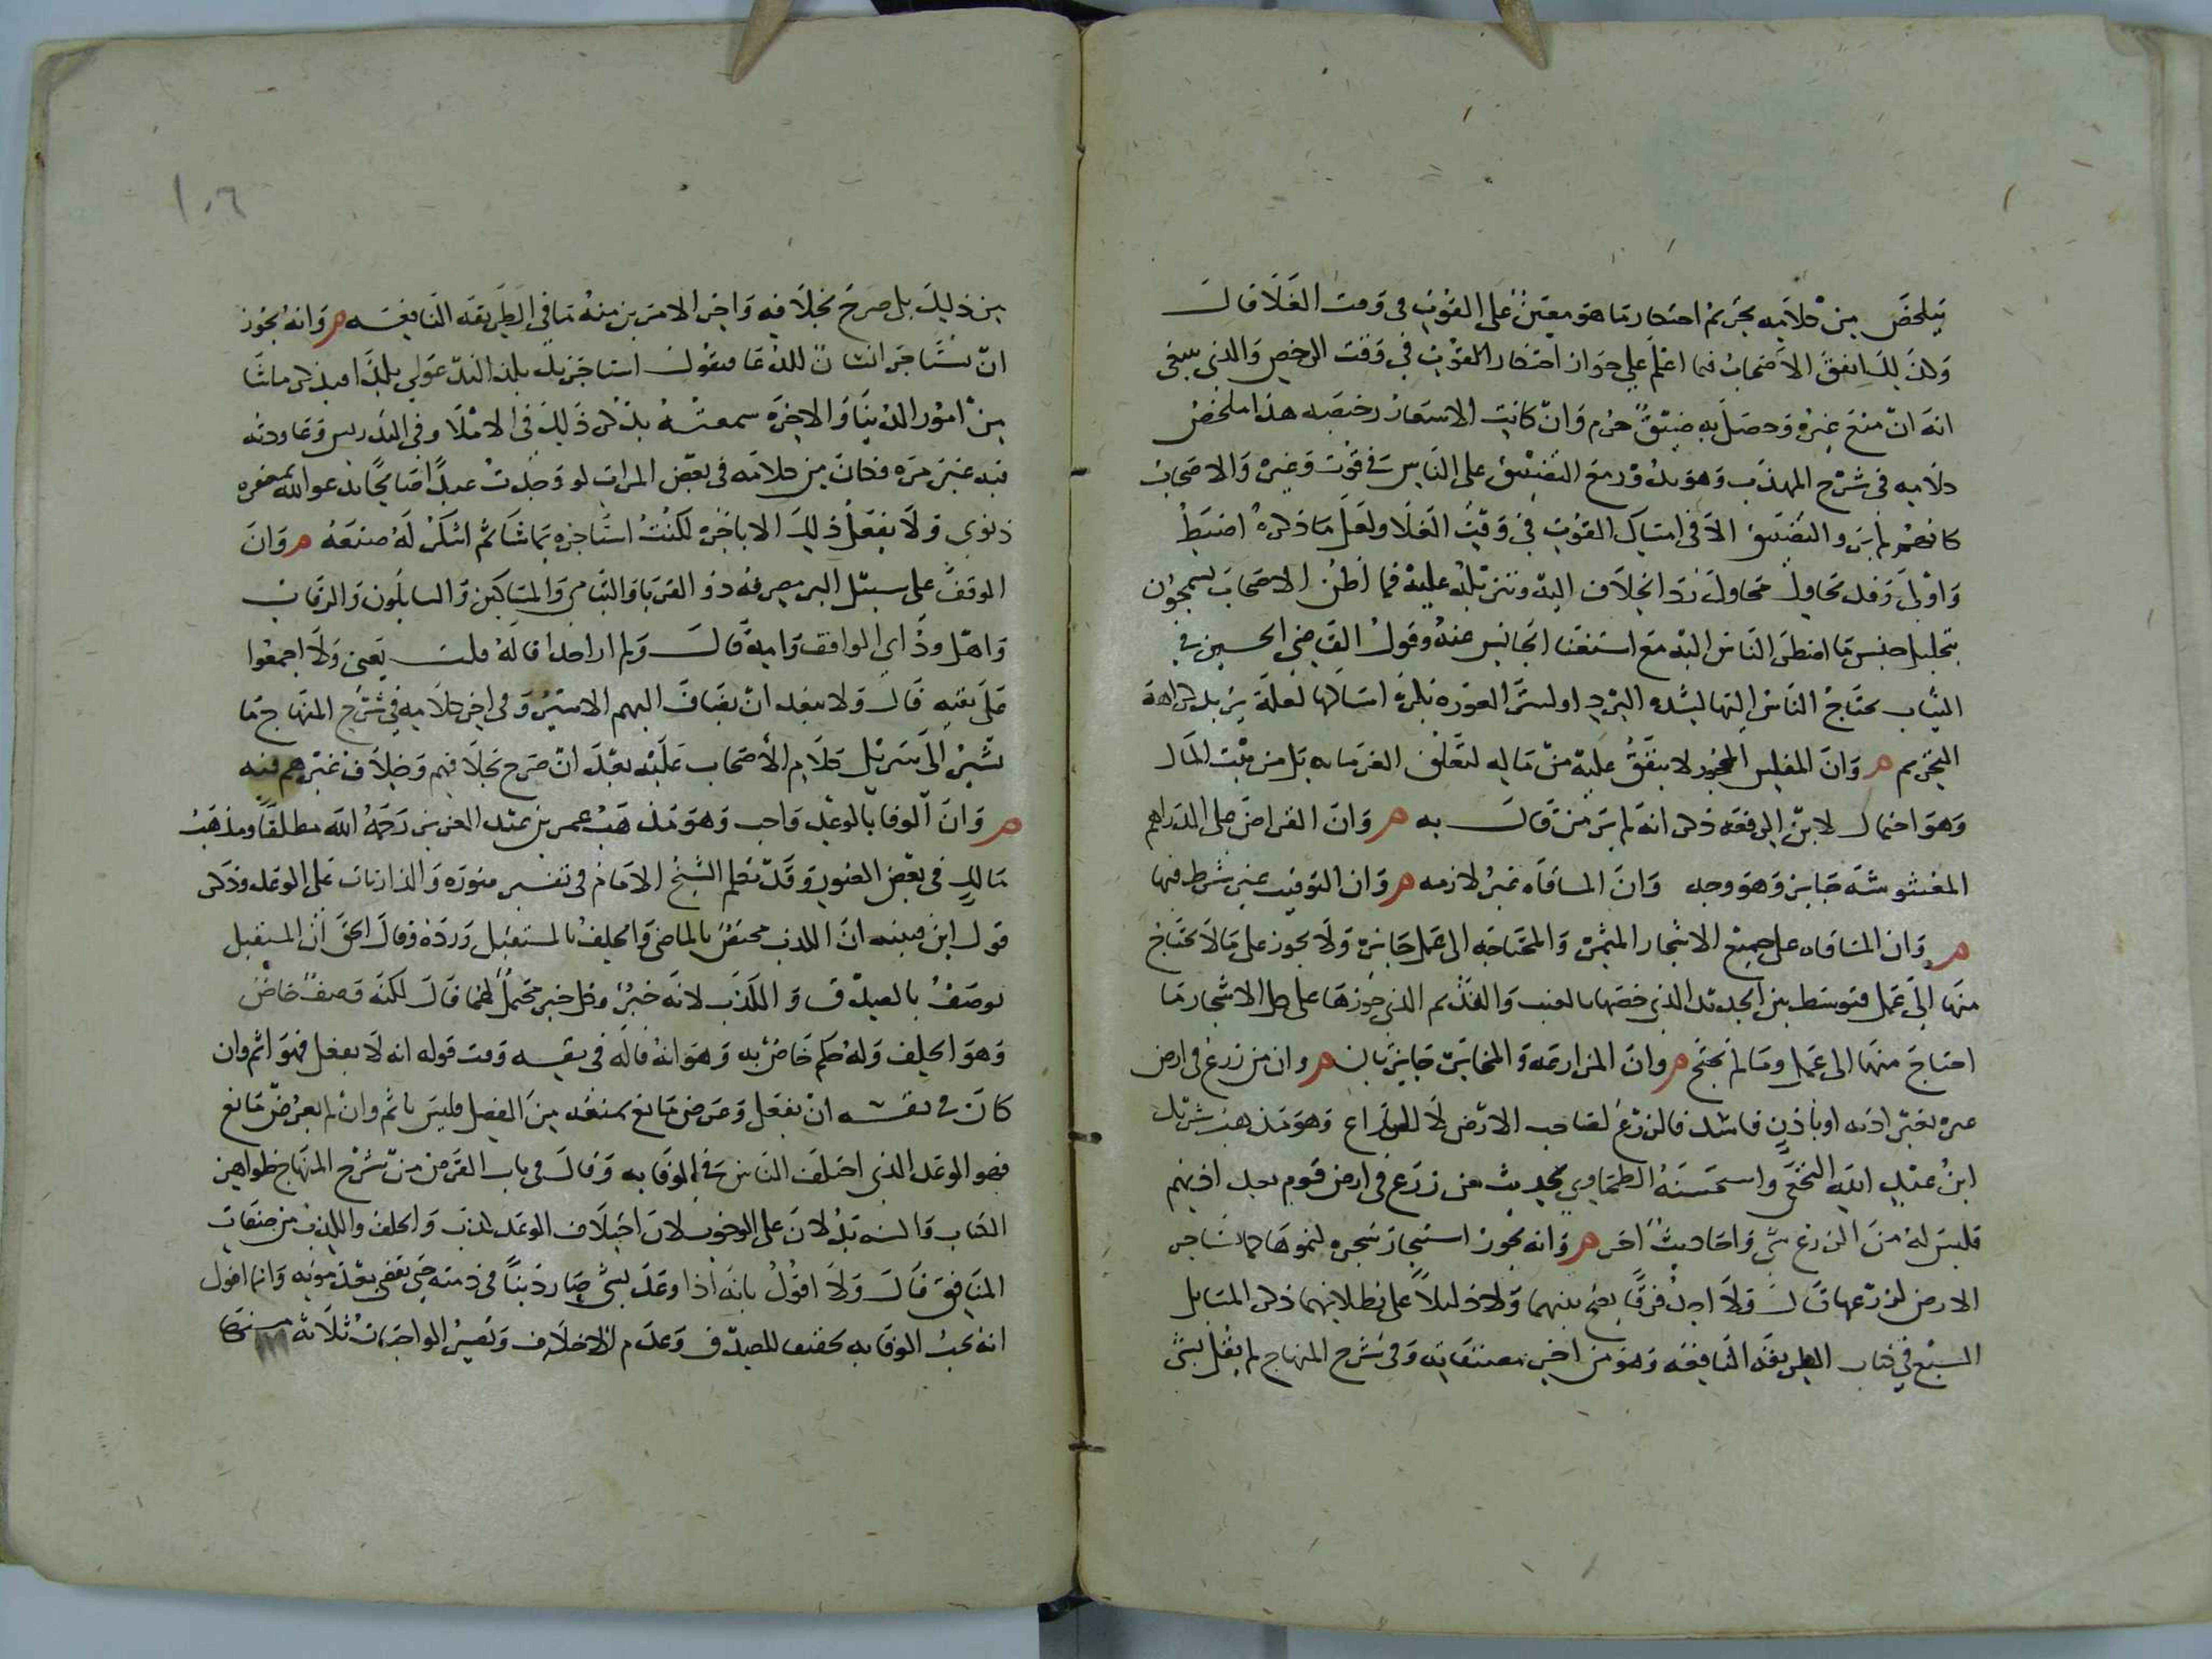 يتلخص من كلامه تحريم احتكار ما هو معين على القوت في وقت الغلا قال
وكذلك اتفق الاصحاب فيما اعلم على جواز احتكار القوت في وقت الرخص والذي ينبغي
انه ان منع غيره وحصل به ضيق حرم وان كانت الاسعار رخيصه هذا ملخص
كلامه في شرح المهذب وهو يدور مع التضييق على الناس في قوت وغيره والاصحاب
كانهم لم يروا التضييق الا في امساك القوت في وقت الغلا ولعل ما ذكره اضبط
واولى وقد تحاول محاول رد الخلاف اليه وتنزيله عليه فما اظن الاصحاب يسمحون
بتحليل حبس ما اضطر الناس اليه مع استغنا الحابس عنه وقول القاضي الحسين في
الثياب يحتاج الناس اليها لشده البرد او لستر العوره يكره امساكها لعله يريد كراهة
التحريم وان المفلس المحجور لا ينفق عليه من ماله لتعلق الغرما به بل من بيت المال
وهو احتمال لابن الرفعه ذكر انه لم ير من قال به وان القراض على الدراهم
المغشوشه جايز وهو وجه وان المساقاه غير لازمه وان التوقيت غير شرط فيها
وان المساقاه على جميع الاشجار المثمرة والمحتاجه الى عمل جايزة ولا يجوز على ما لا يحتاج
منها الى عمل فتوسط بين الجديد الذي خصها بالعنب والقديم الذي جوزها على كل الاشجار ما
احتاج منها الى عمل وما لم يحتج وان المزارعه والمخابرة جايزتان وان من زرع في ارض
غيره بغير اذنه او باذن فاسد فالزرع لصاحب الارض لا للزراع وهو مذهب شريك
ابن عبد الله النخعي واستحسنه الطحاوي لحديث من زرع في ارض قوم بغير اذنهم
فليس له من الزرع شي واحاديث اخر وانه يجوز استيجار شجره لثمرها كما تستاجر
الارض لزرعها قال ولا اجد فرقا يصح بينهما ولا دليلا على بطلانهما ذكر المسايل
السبع في كتاب الطريقه النافعه وهو من اخر مصنفاته وفي شرح المنهاج لم يقل بشي
من ذلك بل صرح بخلافه واخر الامرين منه ما في الطريقه النافعه وانه يجوز
ان يستاجر انسانا للدعا فيقول استاجرتك بكذا لتدعو لي بكذا فيذكر ما شا
من امور الدنيا والاخره سمعته يذكر ذلك في الاملا وفي التدريس وعاودته
فيه غير مره فكان من كلامه في بعض المرات لو وجدت عبدا صالحا يدعو الله بمغفره
ذنوبي ولا يفعل ذلك الا باجرة لكنت استاجره بما شا ثم اشكر له صنعه وان
الوقف على سبيل البر مصرفه ذو القربا واليتامى والمساكين والسايلون والرقاب
واهل ود اي الواقف وابيه قال ولم ار احدا قاله قلت يعني ولا اجمعوا
على نفيه قال ولا يبعد ان يضاف اليهم الاسير وفي اخر كلامه في شرح المنهاج ما
يشير الى تنزيل كلام الاصحاب عليه بعد ان صرح بخلافهم وخلاف غيرهم فيه
وان الوفا بالوعد واجب وهو مذهب عمر بن عبد العزيز رحمه الله مطلقا ومذهب
مالك في بعض الصور وقد تكلم الشيخ الامام في تفسير سورة والذاريات على الوعد وذكر
قول ابن قتيبه ان الكذب مختص بالماضي والخلف بالمستقبل ورده وقال الحق ان المستقبل
يوصف بالصدق والكذب لانه خبر وكل خبر محتمل لهما قال لكنه وصف خاص
وهو الخلف وله حكم خاص به وهو انه قاله في نفسه وقت قوله انه لا يفعل فهو اثم وان
كان في نفسه ان يفعل وعرض مانع يمنعه من الفعل فليس باثم وان لم يعرض مانع
فهو الوعد الذي اختلف الناس في الوفا به وقال في باب القرض من شرح المنهاج ظواهر
الكتاب والسنه تدلان على الوجوب لان اخلاف الوعد كذب والخلف والكذب من صفات
المنافق قال ولا اقول بانه اذا وعد بشي صار دينا في ذمته حتى يقضى بعد موته وانما اقول
انه يجب الوفا به تحقيقا للصدق وعدم الاخلاف وتصير الواجبات ثلاثه منها
١٠٦